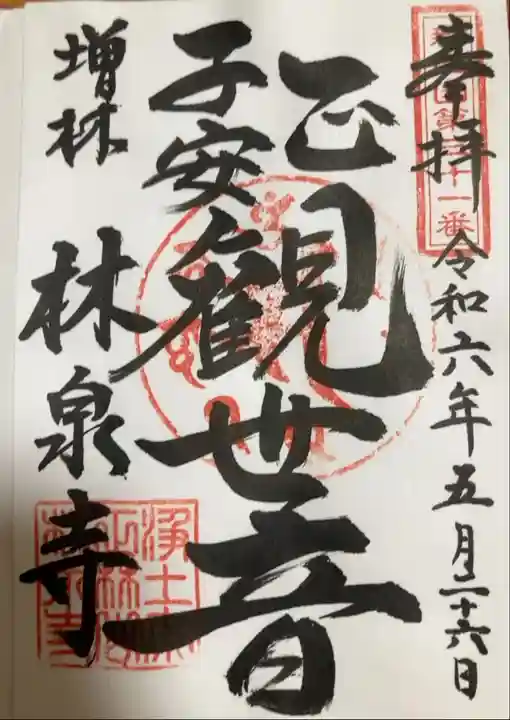 奉拝
令和六年五月二十六日
正
子安
観世音
増林
林泉寺
十一番
浄土宗